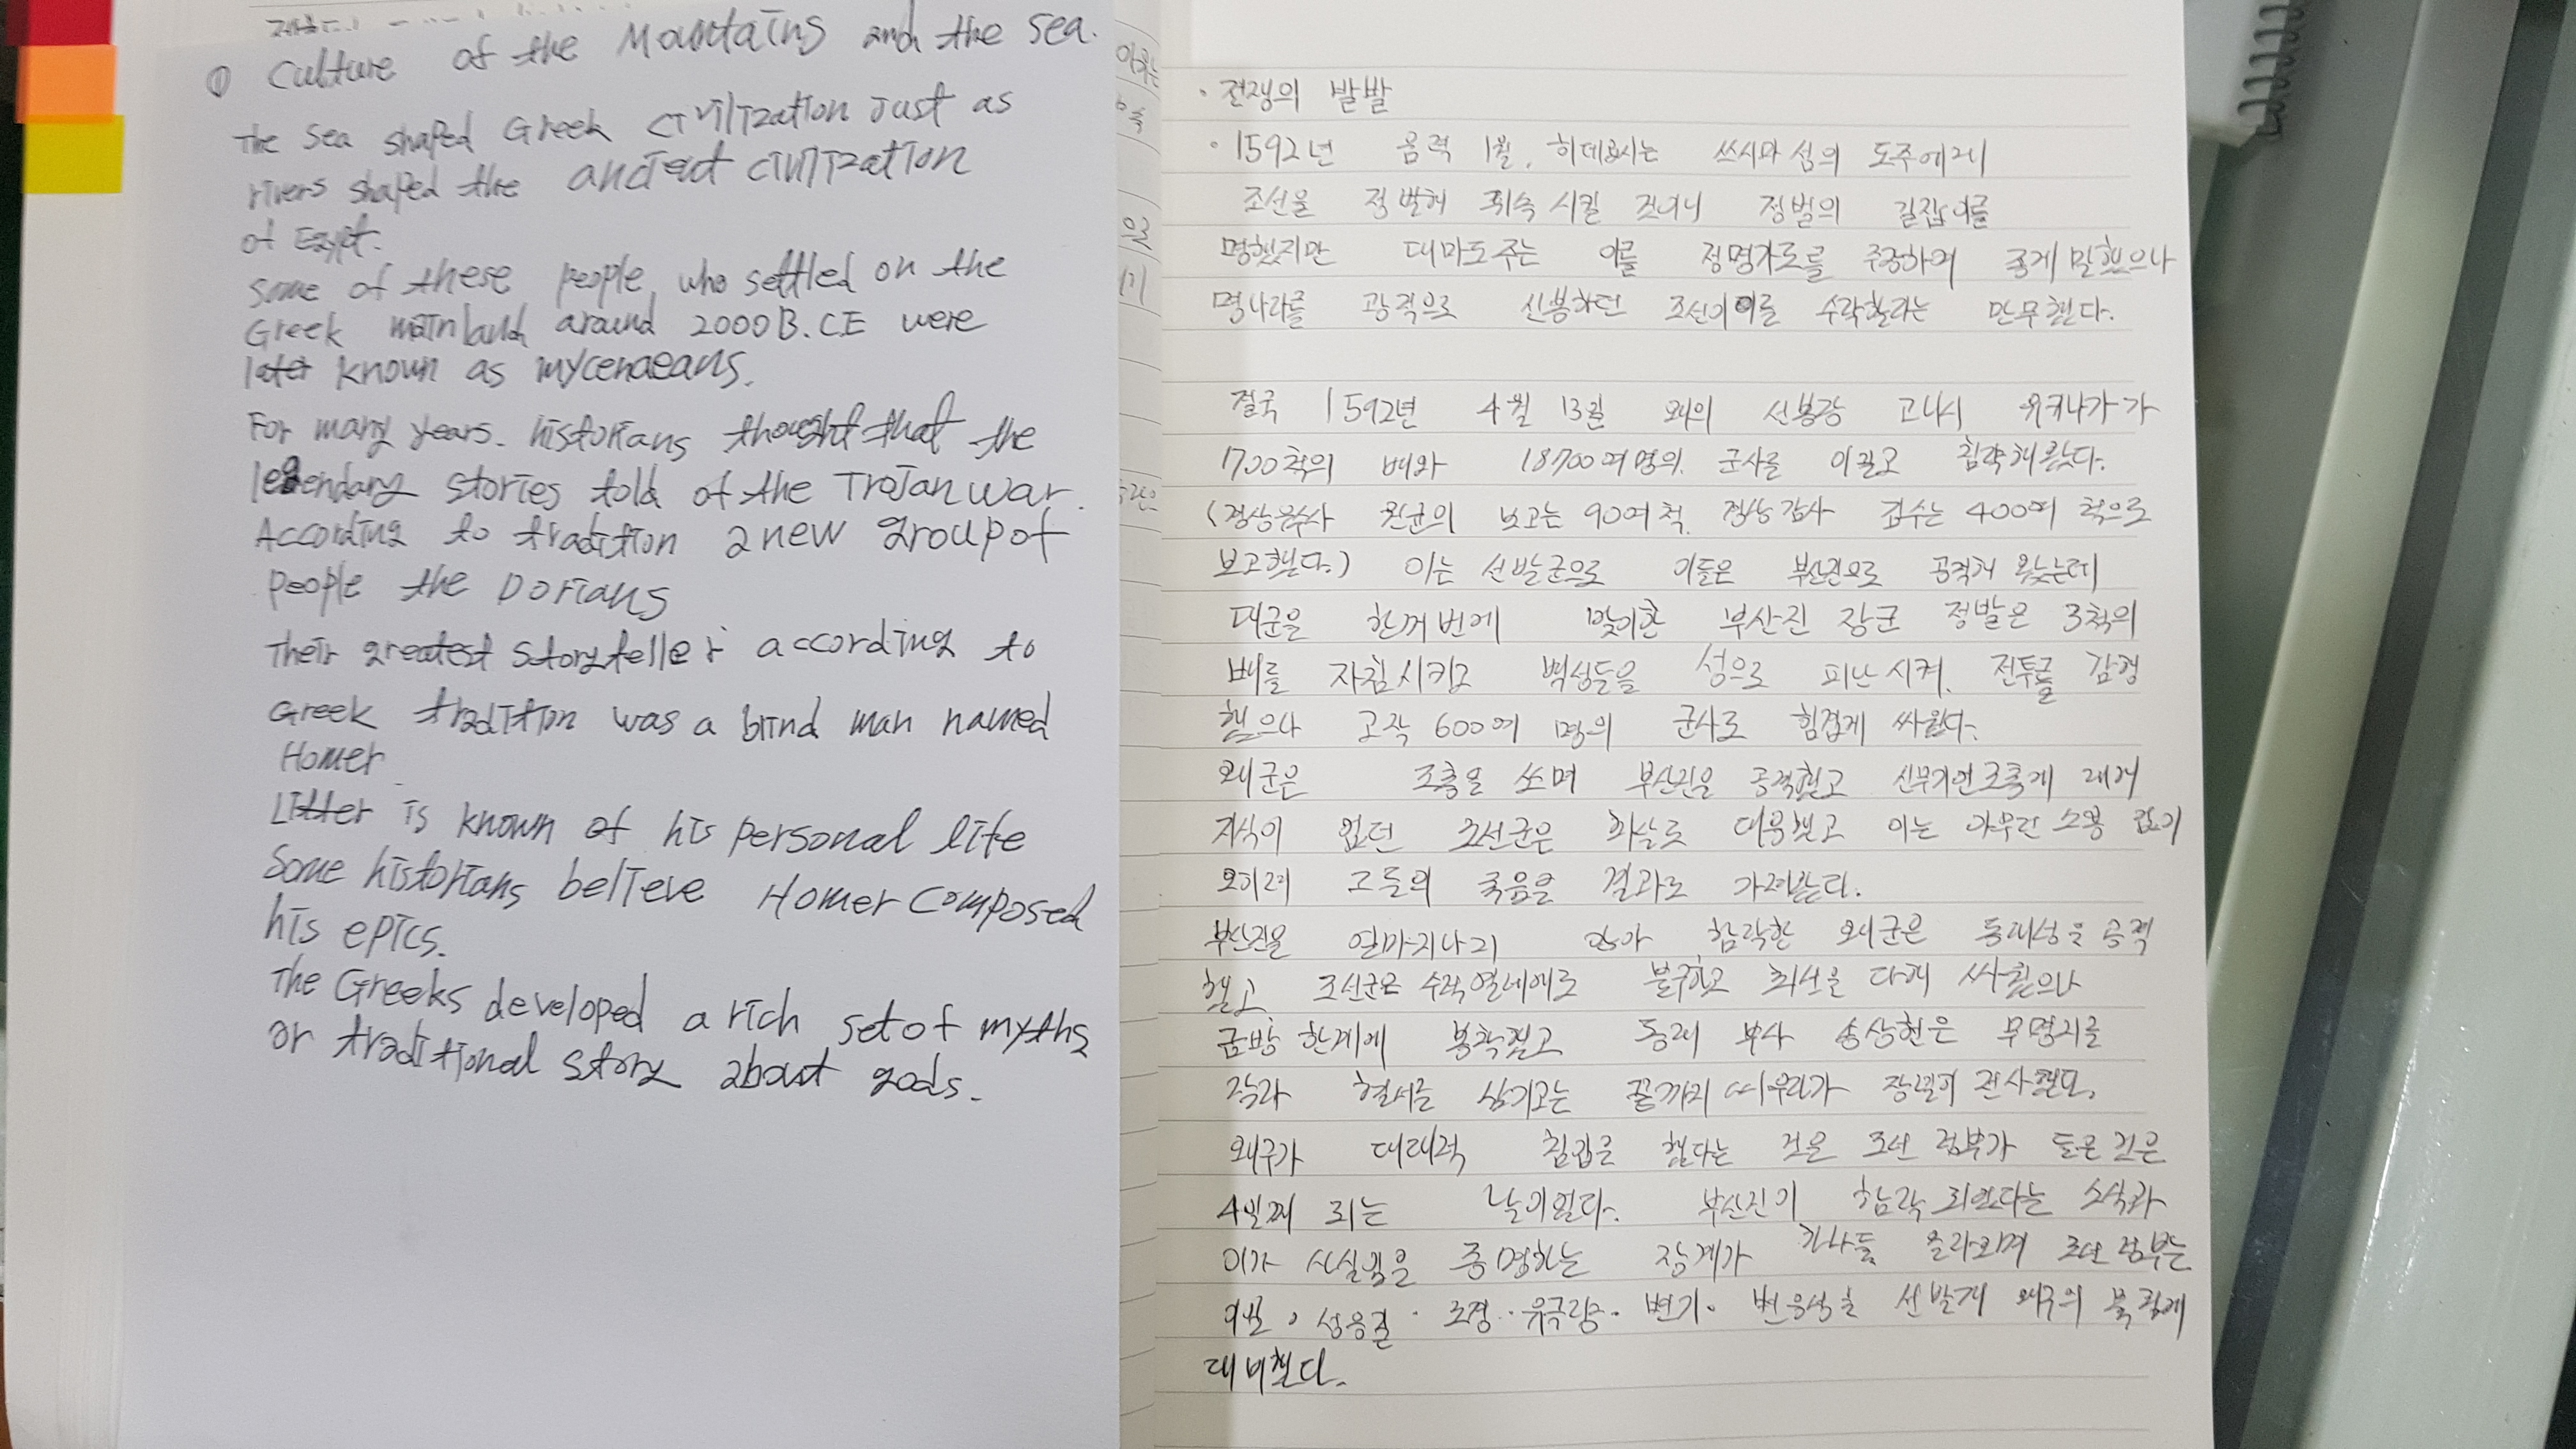 ① Culture of the Mountains and the sea.
The Sea shaped Greek civilization Just as
rivers shaped the ancient civilization
of Egypt.
Some of these people who settled on the
Greek mainland around 2000 B.CE were
later known as mycenaeans.
For many years. historians thought that the
legendary stories told of the Trojan war.
According to tradition a new group of
people the Dorians
Their greatest storyteller according to
Greek tradition was a blind man named
Homer
Litter is known of his personal life
Some historians believe Homer composed
his epics.
The Greeks developed a rich set of myths
or traditional story about gods.
· 전쟁의 발발
· 1592년 음력 1월, 히데요시는 쓰시마 섬의 도주에게
조선을 정벌해 귀속 시킬 것이니 정벌의 길잡이를
명했지만 대마도주는 이를 정명가도를 주장하여 좋게 말했으나
명나라를 광적으로 신봉하던 조선이 이를 수락할리는 만무했다.
결국 1592년 4월 13일 왜의 선봉장 고니시 유키나가가
1700척의 배와 18700여명의 군사를 이끌고 침략해왔다.
(경상우수사 원균의 보고는 90여척, 경상감사 김수는 400여 척으로
보고했다.) 이는 선발군으로 이들은 부산진으로 공격해 왔는데
대군을 한꺼번에 맞이한 부산진 장군 정발은 3척의
배를 자침시키고 백성들을 성으로 피난시켜, 전투를 감행
했으나 고작 600여 명의 군사로 힘겹게 싸웠다.
왜군은 조총을 쏘며 부산진을 공격했고 신무기인 조총에 대해
지식이 없던 조선군은 화살로 대응했고 이는 아무런 소용 없이
오히려 그들의 죽음을 결과로 가져왔다.
부산진을 얼마지나지 않아 함락한 왜군은 동래성을 공격
했고 조선군은 수적열세에도 불구하고 최선을 다해 싸웠으나
금방 한계에 봉착했고 동래 부사 송상현은 무명지를
잘라 혈서를 남기고는 끝까지 싸우다가 장렬히 전사했다.
왜구가 대대적 침입을 했다는 것을 조선 정부가 들은 것은
4일째 되는 날이였다. 부산진이 함락 되었다는 소식과
이가 사실임을 증명하는 장계가 하나둘 올라오며 조선 정부는
이일, 성응길 · 조경 · 유극량 · 변기 · 변응성을 선발해 왜구의 북침에
대비했다.